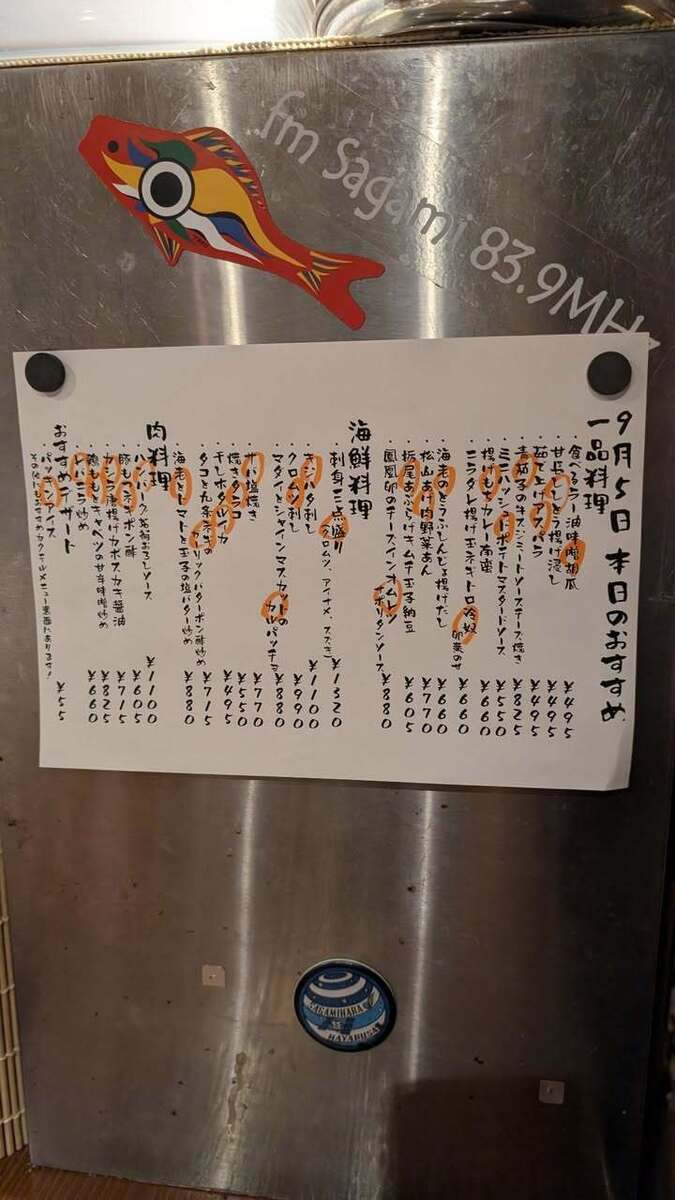 fm Sagami 83.9MHz
9月5日 本日のおすすめ
一品料理
・食べるラー油味噌胡瓜 ¥495
・甘長とうがらし揚げ浸し ¥495
・茹で上げアスパラ ¥495
・青茄子の牛スジミートソースチーズ焼き ¥825
・ミニハッシュドポテトマスタードソース ¥550
・揚げもちカレー南蛮 ¥660
・ニラダレ揚げ玉ネギトロ冷奴 卵黄のせ ¥660
・海老のとうふしんじょ揚げだし ¥660
・松山あげ肉野菜あん ¥770
・栃尾あぶらげキムチ玉子納豆 ¥605
・鳳凰卵のチーズインオムレツ ナポリタンソース ¥880
海鮮料理
・刺身三点盛り (クロムツ、アイナメ、スズキ) ¥1320
・キジハタ刺し ¥1100
・クロムツ刺し ¥990
・マダイとシャインマスカットのカルパッチョ ¥880
・サバ塩焼き ¥770
・焼きタラコ ¥550
・干しホタルイカ ¥495
・タコと九条ネギのガーリックバターポン酢炒め ¥715
・海老トマトと玉子の塩バター炒め ¥880
肉料理
・ハンバーグ 茗荷おろしソース ¥1100
・豚もも ネギポン酢 ¥605
・カモ 唐揚げカボスカキ醤油 ¥715
・鶏ももとキャベツの甘辛味噌炒め ¥825
・レバニラ炒め ¥660
おすすめデザート
・パッキンアイス ¥55
その他にもおすすめカクテルメニュー裏面にあります!
SAGAMIHARA
HAYABUSA2